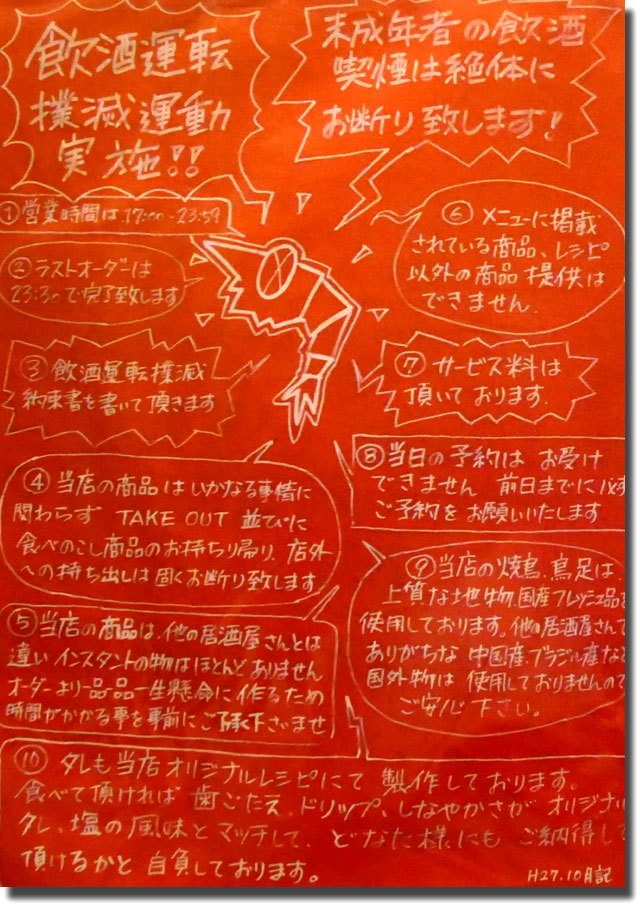 飲酒運転
撲滅運動
実施!!
未成年者の飲酒
喫煙は絶体に
お断り致します!
① 営業時間は 17:00-23:59
② ラストオーダーは
23:30で完了致します
③ 飲酒運転撲滅
約束書を書いて頂きます
④ 当店の商品はいかなる事情に
関わらず TAKE OUT 並びに
食べのこし商品のお持ち帰り、店外
への持ち出しは固くお断り致します
⑤ 当店の商品は、他の居酒屋さんとは
違い インスタントの物はほとんどありません
オーダーより一品一品一生懸命に作るため
時間がかかる事を事前にご了承下さいませ
⑥ メニューに掲載
されている商品、レシピ
以外の商品提供は
できません。
⑦ サービス料は
頂いております。
⑧ 当日の予約は お受け
できません 前日までに必ず
ご予約を お願いいたします
⑨ 当店の焼鳥、鳥足は、
上質な地物、国産フレッシュ品を
使用しております。他の居酒屋さんで
ありがちな 中国産、ブラジル産など
国外物は 使用しておりませんので
ご安心下さい。
⑩ タレも当店オリジナルレシピにて 製作しております。
食べて頂ければ 歯ごたえ、ドリップ、しなやかさが オリジナル
タレ、塩の風味とマッチして、どなた様にも ご納得して
頂けるかと 自負しております。
H27.10月記